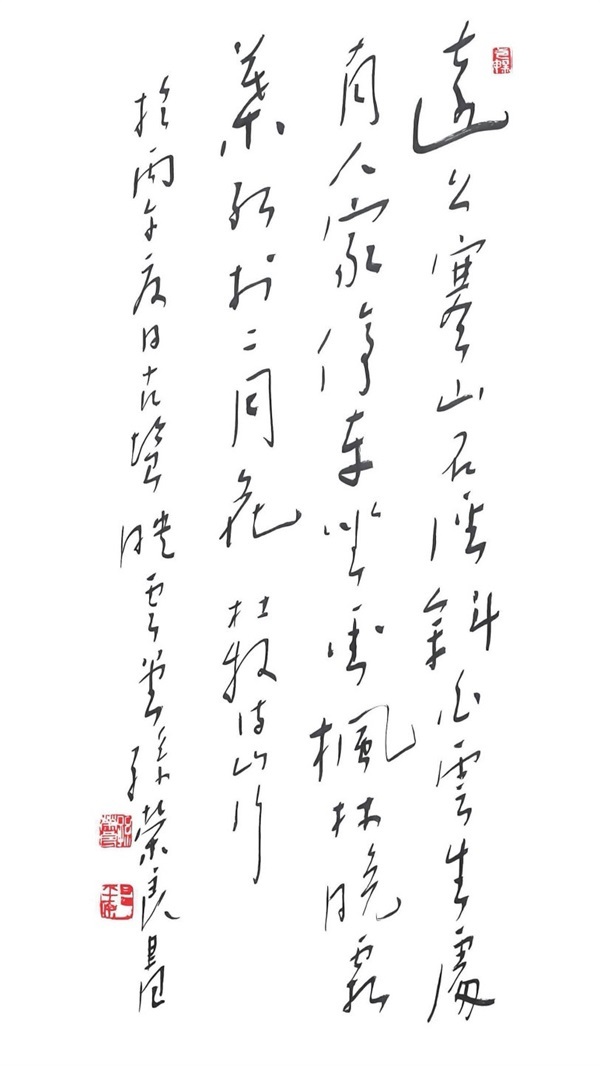 遠上寒山石徑斜白雲生處
有人家停車坐愛楓林晚霜
葉紅於二月花 杜牧詩山行
於丙午夏日古映雲堂孫榮良書